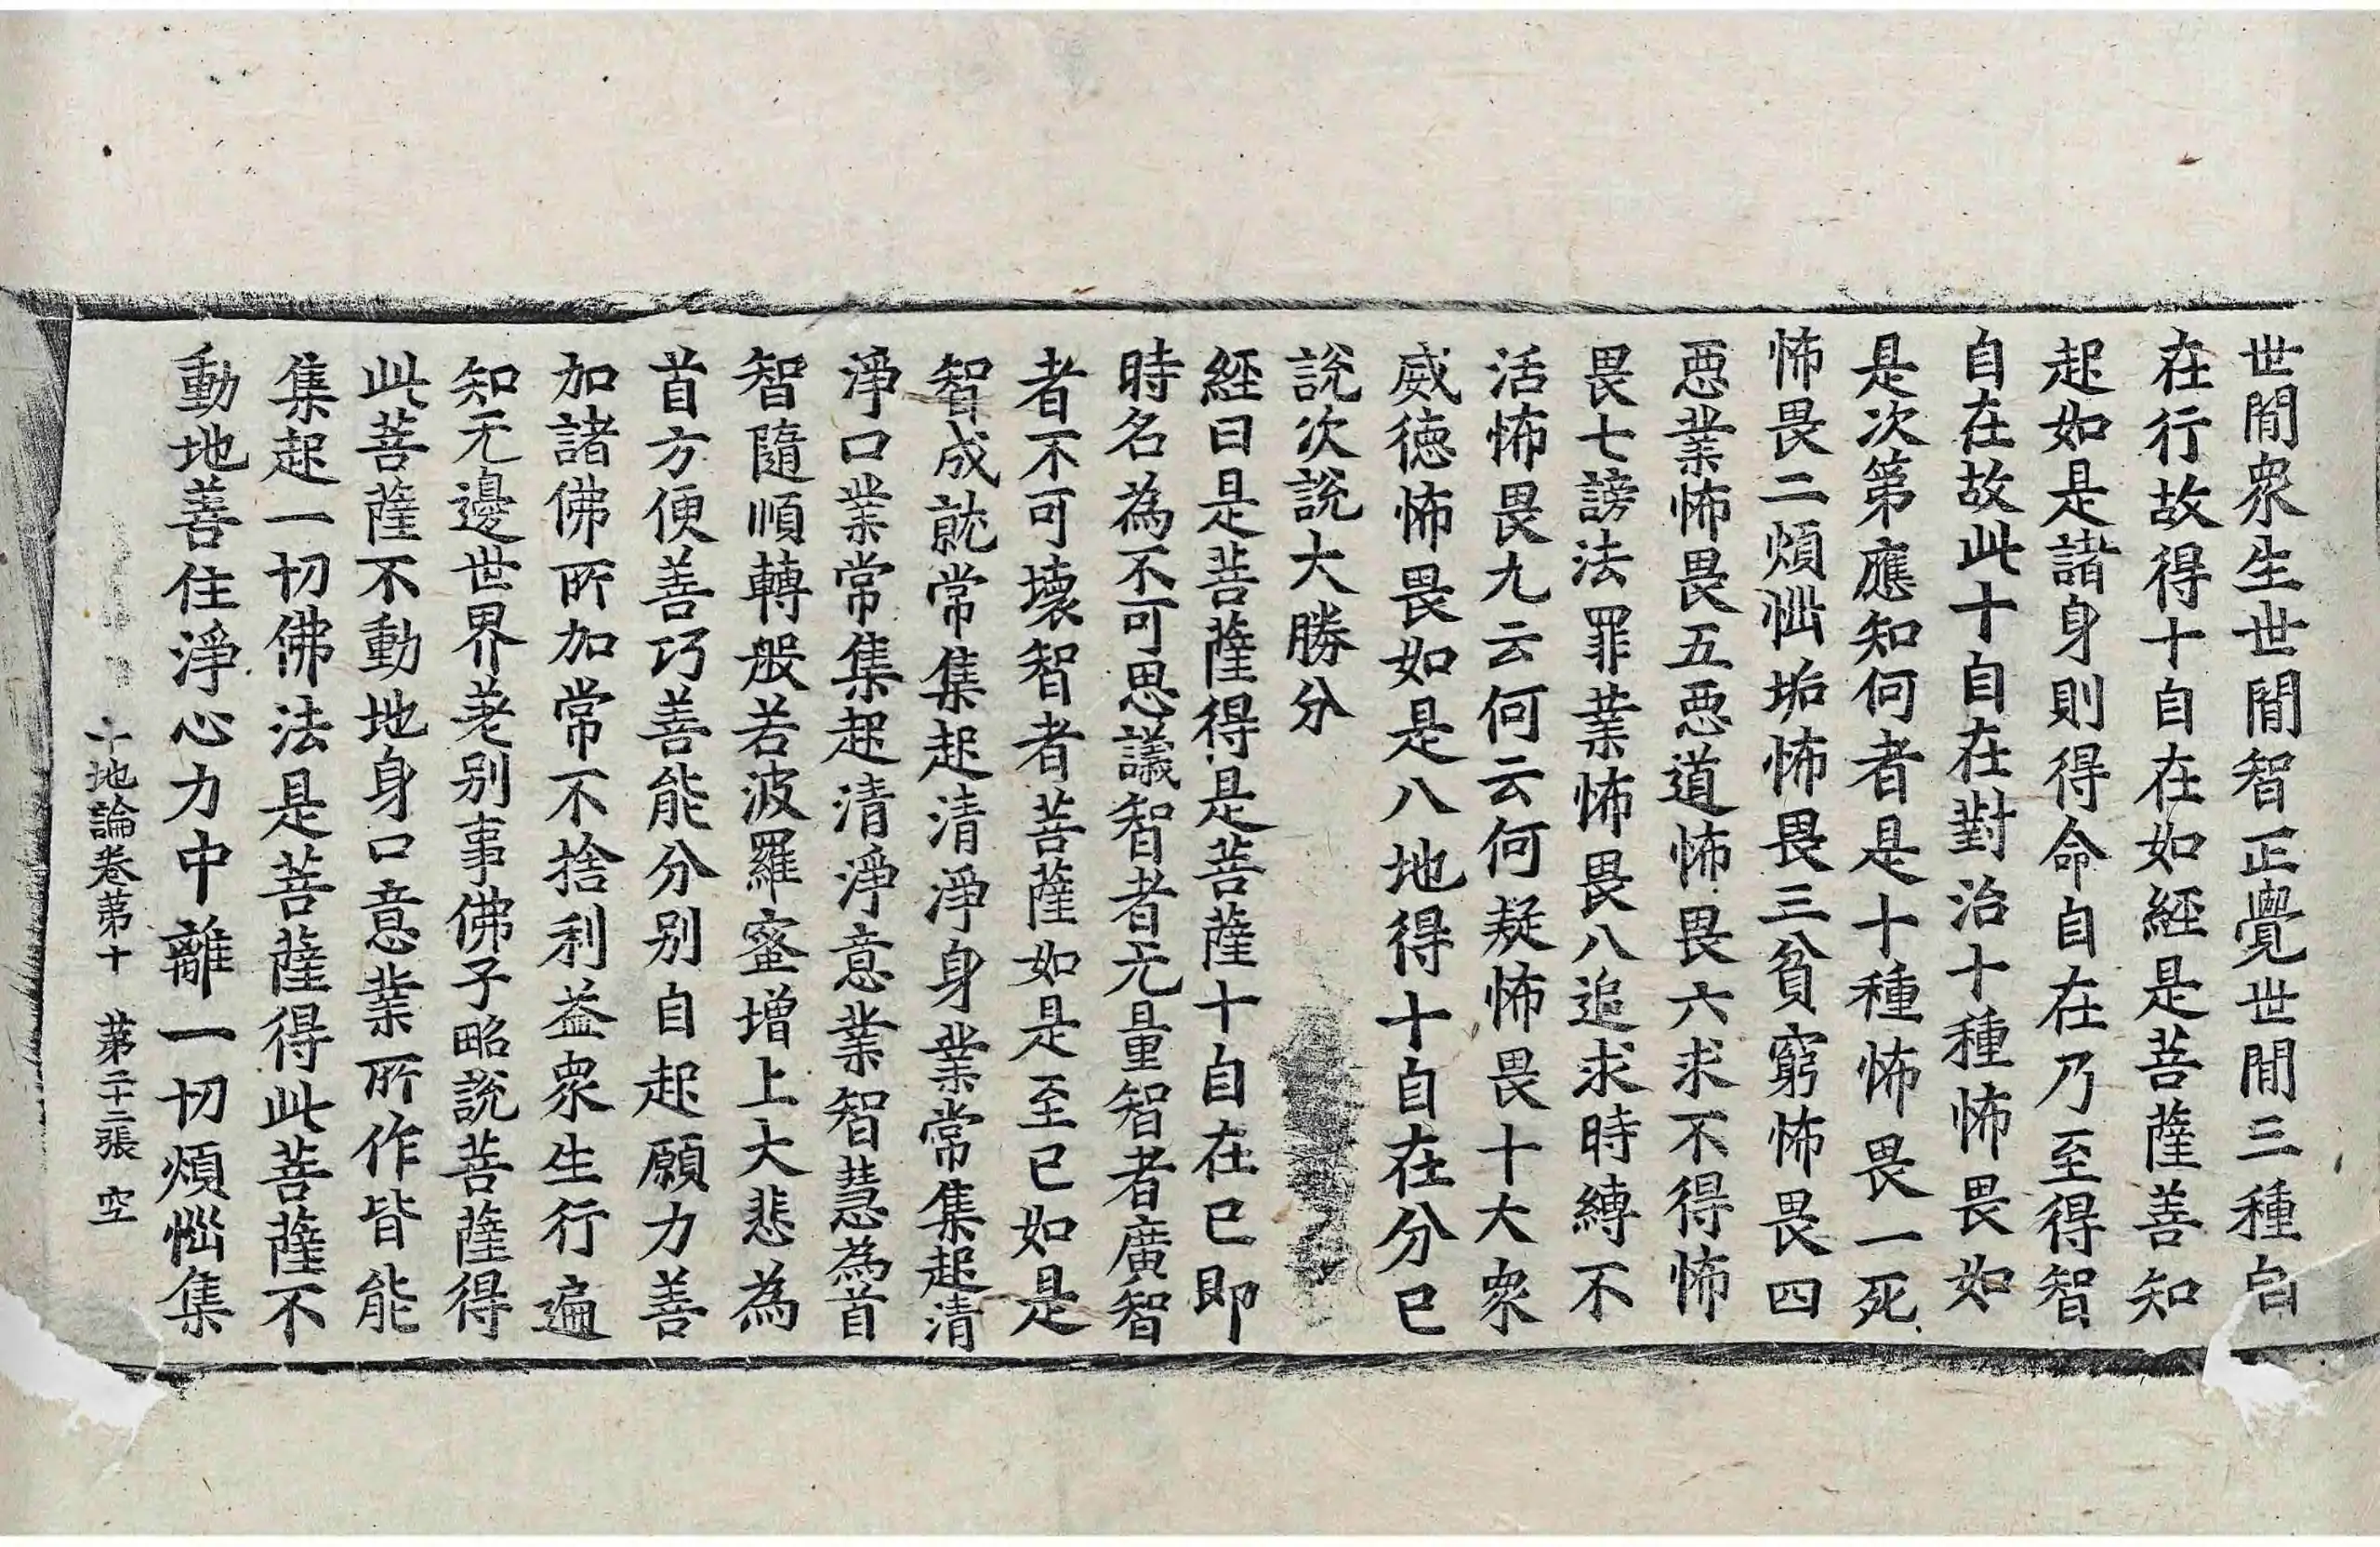 世間衆生世間智正覺世間三種自
在行故得十自在如經是菩薩善知
起如是諸身則得命自在乃至得智
自在故此十自在對治十種怖畏如
是次第應知何者是十種怖畏一死
怖畏二煩惱垢怖畏三貧窮怖畏四
惡業怖畏五惡道怖畏六求不得怖
畏七謗法罪業怖畏八追求時縛不
活怖畏九云何云何疑怖畏十大衆
威德怖畏如是八地得十自在分已
說次說大勝分
經曰是菩薩得是菩薩十自在已即
時名為不可思議智者无量智者廣智
者不可壞智者菩薩如是至已如是
智成就常集起清淨身業常集起清
淨口業常集起清淨意業智慧為首
智隨順轉般若波羅蜜增上大悲為
首方便善巧善能分別自起願力善
加諸佛所加常不捨利益衆生行遍
知无邊世界差別事佛子略說菩薩得
此菩薩不動地身口意業所作皆能
集起一切佛法是菩薩得此菩薩不
動地善住淨心力中離一切煩惱集
十地論卷第十　第二十二張　空